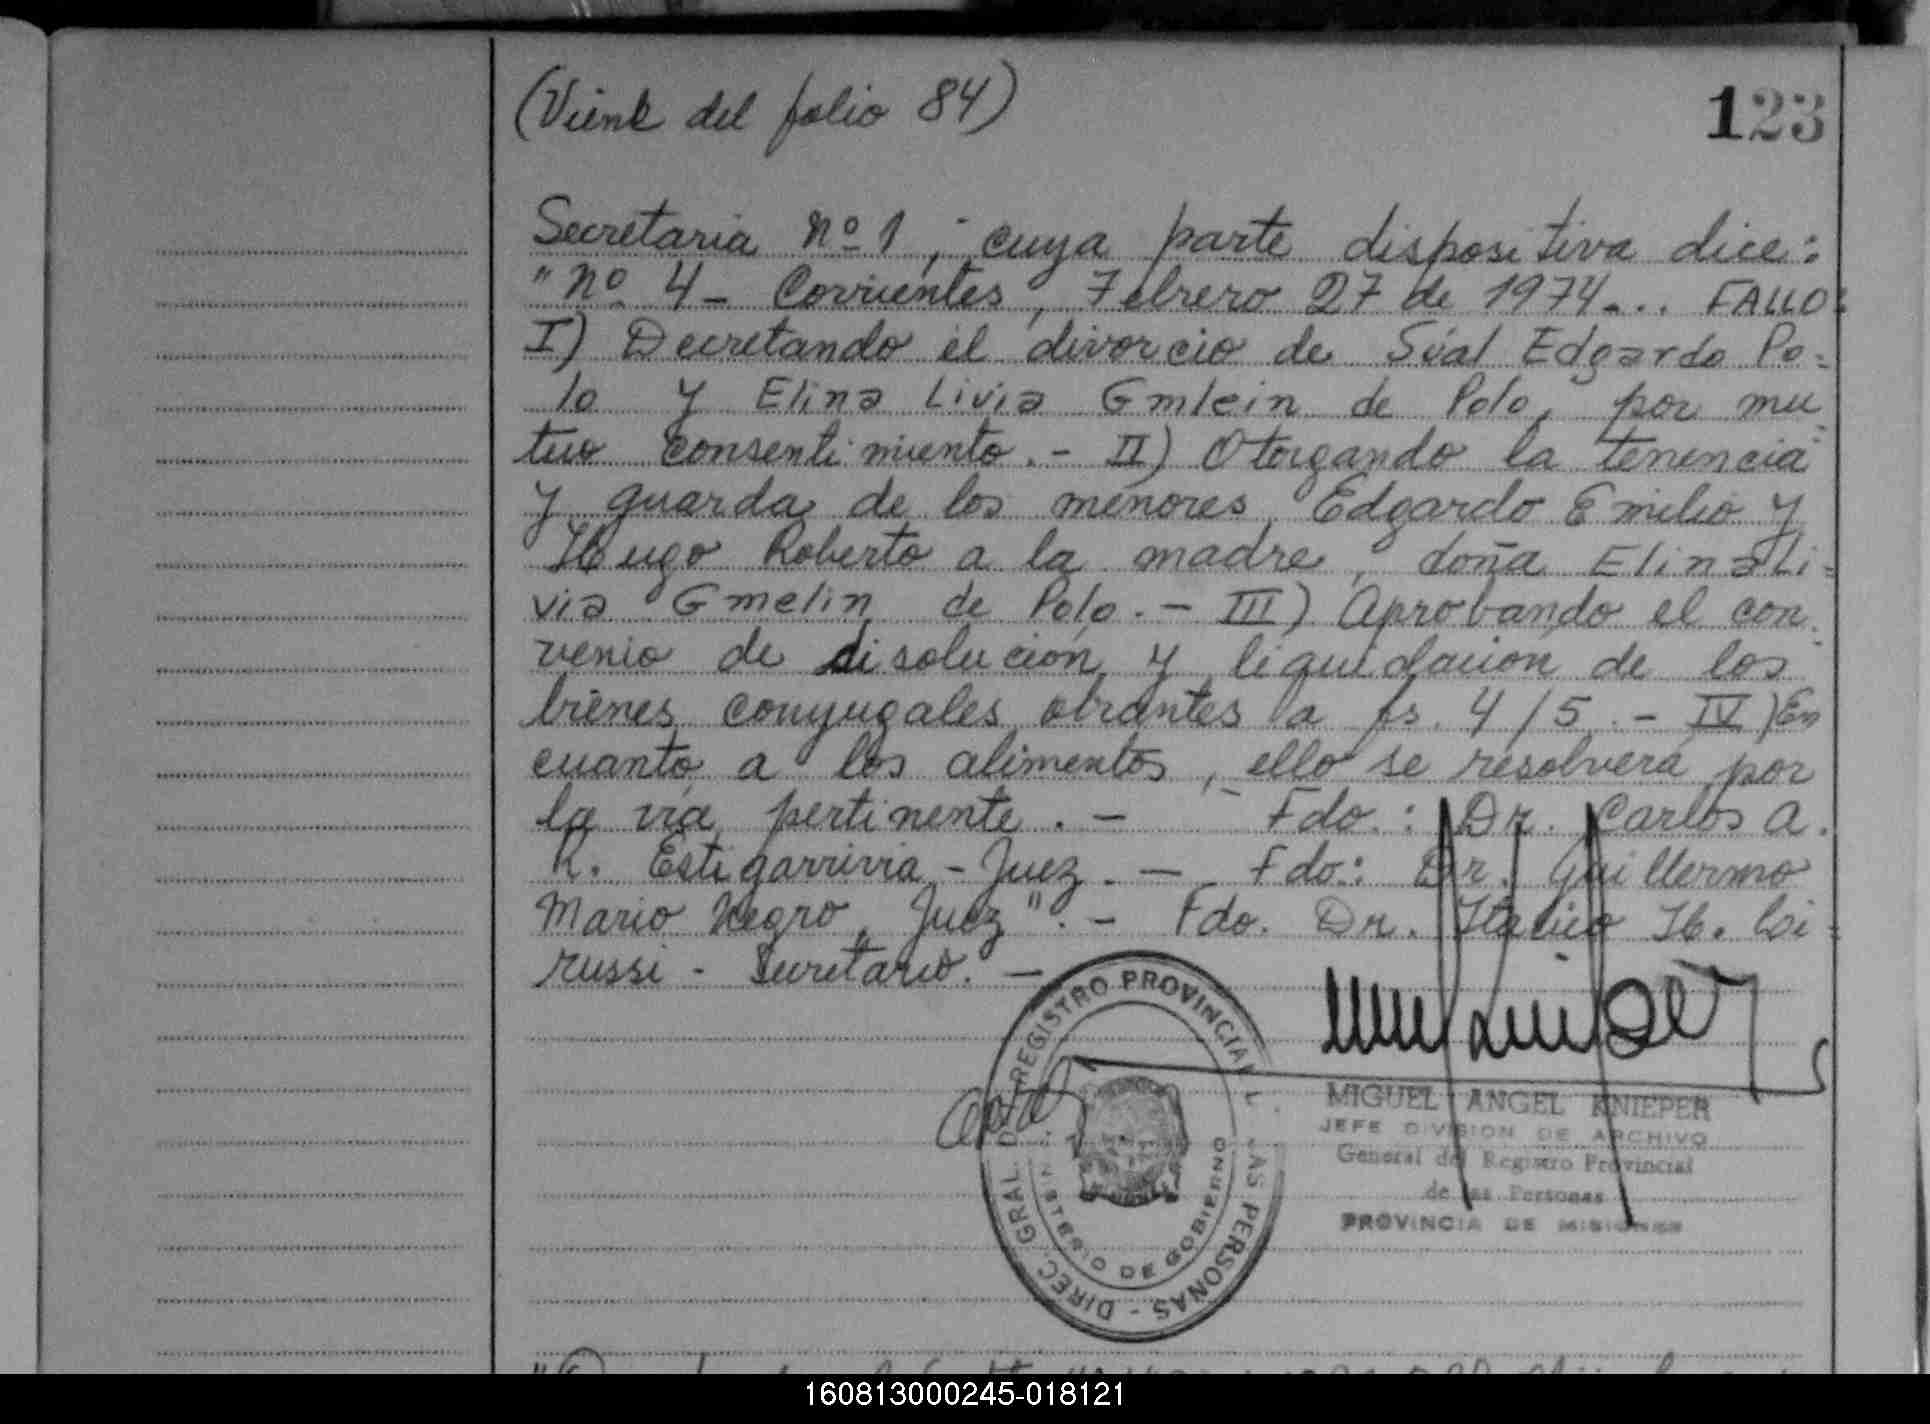 (Viene del folio 84)
123
Secretaria Nº 1, cuya parte dispositiva dice:
"Nº 4 - Corrientes, Febrero 27 de 1974... FALLO:
I) Decretando el divorcio de Sial Edgardo Po=
lo y Elina Livia Gmlein de Polo, por mu
tuo consentimiento.- II) Otorgando la tenencia
y guarda de los menores Edgardo Emilio y
Hugo Roberto a la madre, doña Elina Li=
via Gmelin de Polo.- III) Aprobando el con
venio de disolución y liquidación de los
bienes conyugales obrantes a fs. 4/5.- IV) En
cuanto a los alimentos, ello se resolverá por
la vía pertinente.- Fdo.: Dr. Carlos A.
R. Estigarrivia - Juez.- Fdo: Dr. Guillermo
Mario Negro, Juez".- Fdo. Dr. Italico H. Ci=
russi - Secretario.-
DIREC. GRAL. DEL REGISTRO PROVINCIAL DE LAS PERSONAS -
MINISTERIO DE GOBIERNO
MIGUEL ANGEL KNIEPER
JEFE DIVISION DE ARCHIVO
General del Registro Provincial
de las Personas
PROVINCIA DE MISIONES
160813000245-018121